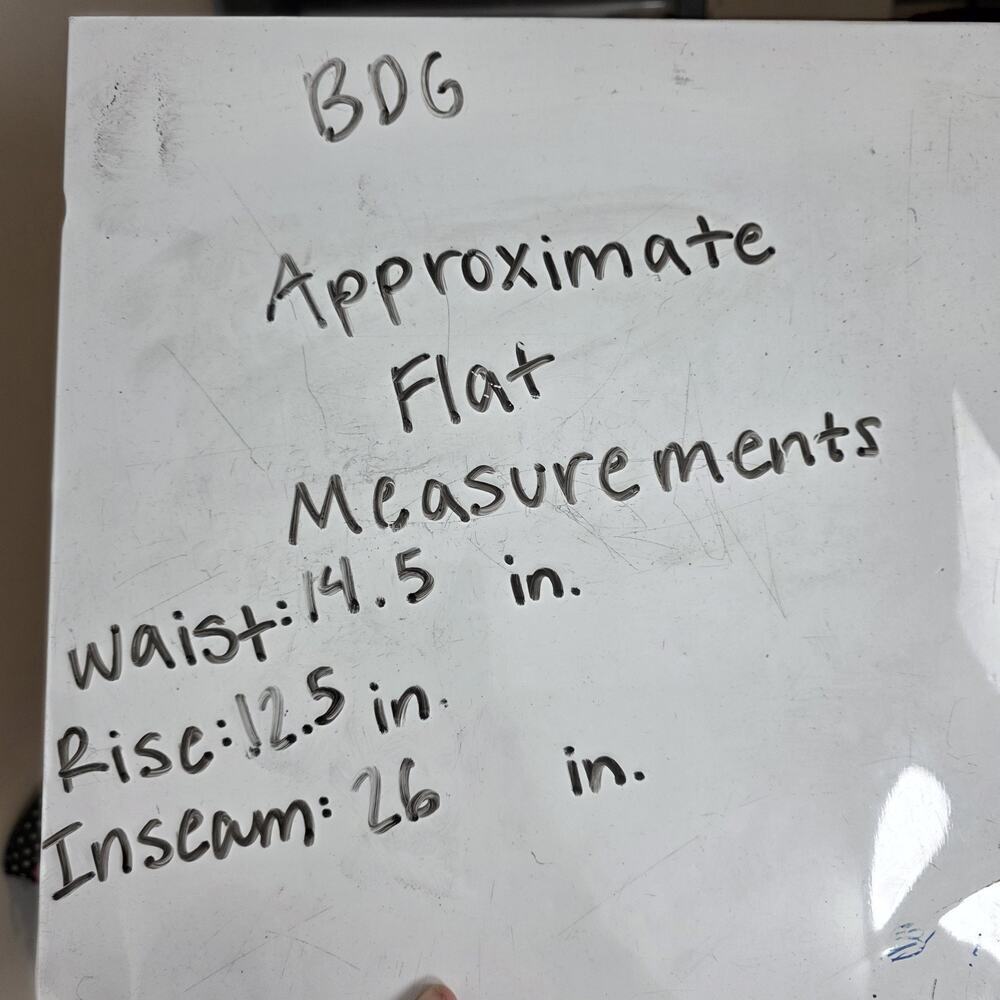 BDG
Approximate
Flat
Measurements
Waist: 14.5 in.
Rise: 12.5 in.
Inseam: 26 in.